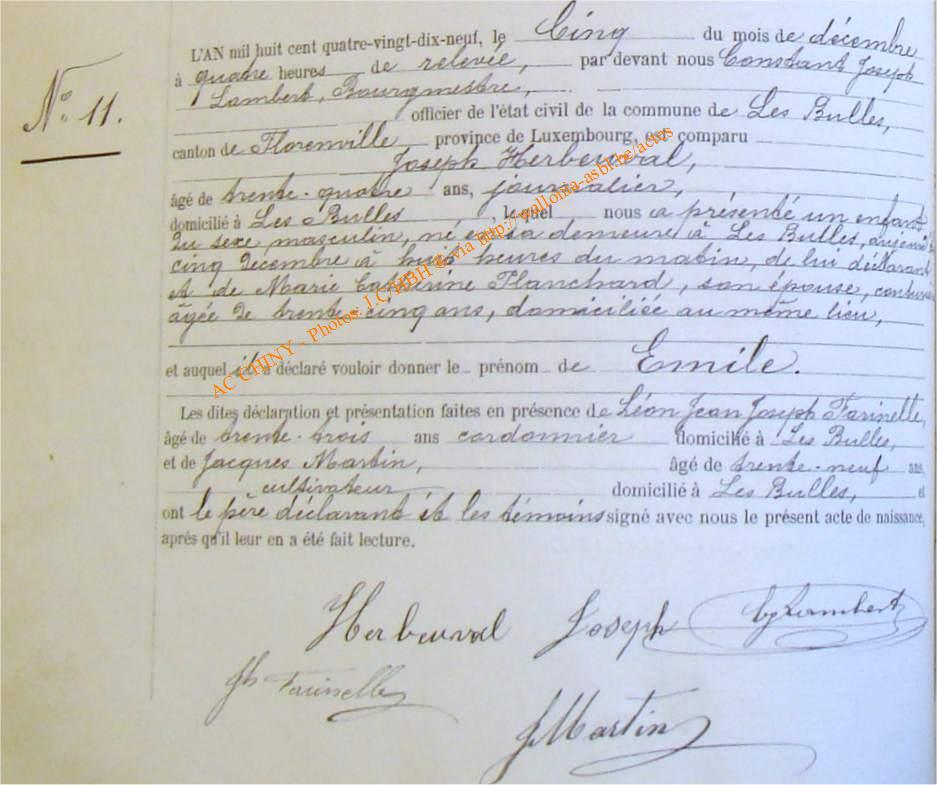 N° 11.
L'AN mil huit cent quatre-vingt-dix-neuf, le Cinq du mois de décembre
à quatre heures de relevée, par devant nous Constant Joseph
Lambert, Bourgmestre,
officier de l'état civil de la commune de Les Bulles,
canton de Florenville province de Luxembourg, est comparu
Joseph Herbeuval,
âgé de trente-quatre ans, journalier,
domicilié à Les Bulles, lequel nous a présenté un enfant
du sexe masculin, né en sa demeure à Les Bulles,
cinq Décembre à huit heures du matin, de lui déclarant
et de Marie Catherine Planchard, son épouse,
âgée de trente-cinq ans, domiciliée au même lieu,
et auquel il a déclaré vouloir donner le prénom de Emile.
Les dites déclaration et présentation faites en présence de Léon Jean Joseph Farinelle,
âgé de trente-trois ans cordonnier domicilié à Les Bulles,
et de Jacques Martin, âgé de trente-neuf ans,
cultivateur domicilié à Les Bulles, et
ont le père déclarant et les témoins signé avec nous le présent acte de naissance,
après qu'il leur en a été fait lecture.
Herbeuval Joseph Lambert
Farinelle
J Martin
AC CHINY - Photos J.C. HBH & via http://wallonia-asbl.be/actes